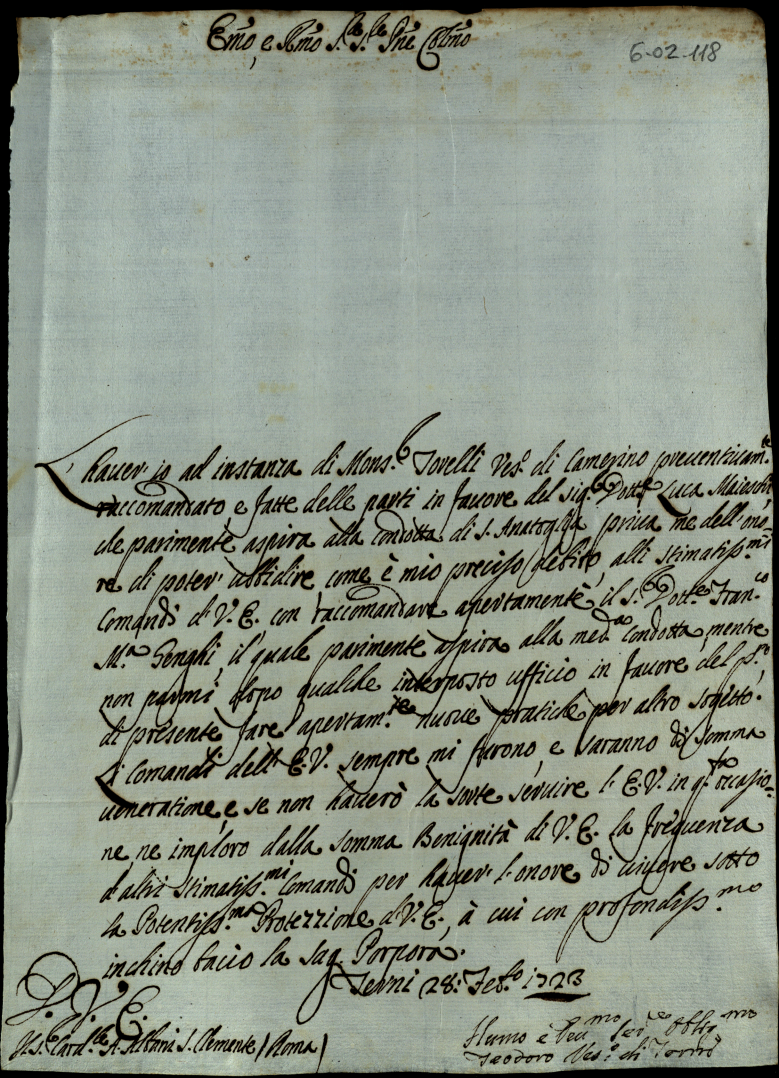 Em̃o, e Rm̃o Sig.re Sig.re Pne Colm̃o
6-02-118
L'haver' io ad instanza di Mons.r Torelli Ves.o di Camerino preventivam.te
raccomandato e fatte delle parti in favore del sig.r Dott.re Luca
che parimente aspira alla condotta di S. Anatoglia, priva me dell'ono-
re di poter' ubbidire, come è mio preciso debito, alli stimatiss.mi
Comandi di V. E. con raccomandare apertamente, il S.r Dott.re Fran.co
M.a Genghi, il quale parimente aspira alla med.a condotta, mentre
non parmi, dopo qualche interposto ufficio in favore del p.o,
di presente fare apertam.te nuove pratiche per altro sogetto.
Li Comandi dell' E. V. sempre mi furono, e saranno di somma
veneratione, e se non haverò la sorte servire l' E. V. in q.ta occasio-
ne, ne imploro dalla somma Benignità di V. E. la frequenza
d'altri stimatiss.mi Comandi per haver' l'onore di vivere sotto
la Potentiss.ma Protezzione di V. E., à cui con profondiss.mo
inchino bacio la Sag. Porpora.
Terni 28: Feb.o 1723
D. V. E.
H S.r Card.le A. Albani S. Clemente / Roma /
Humo e Dev.mo Ser.re Oblig.mo
Teodoro Ves.o di Terni